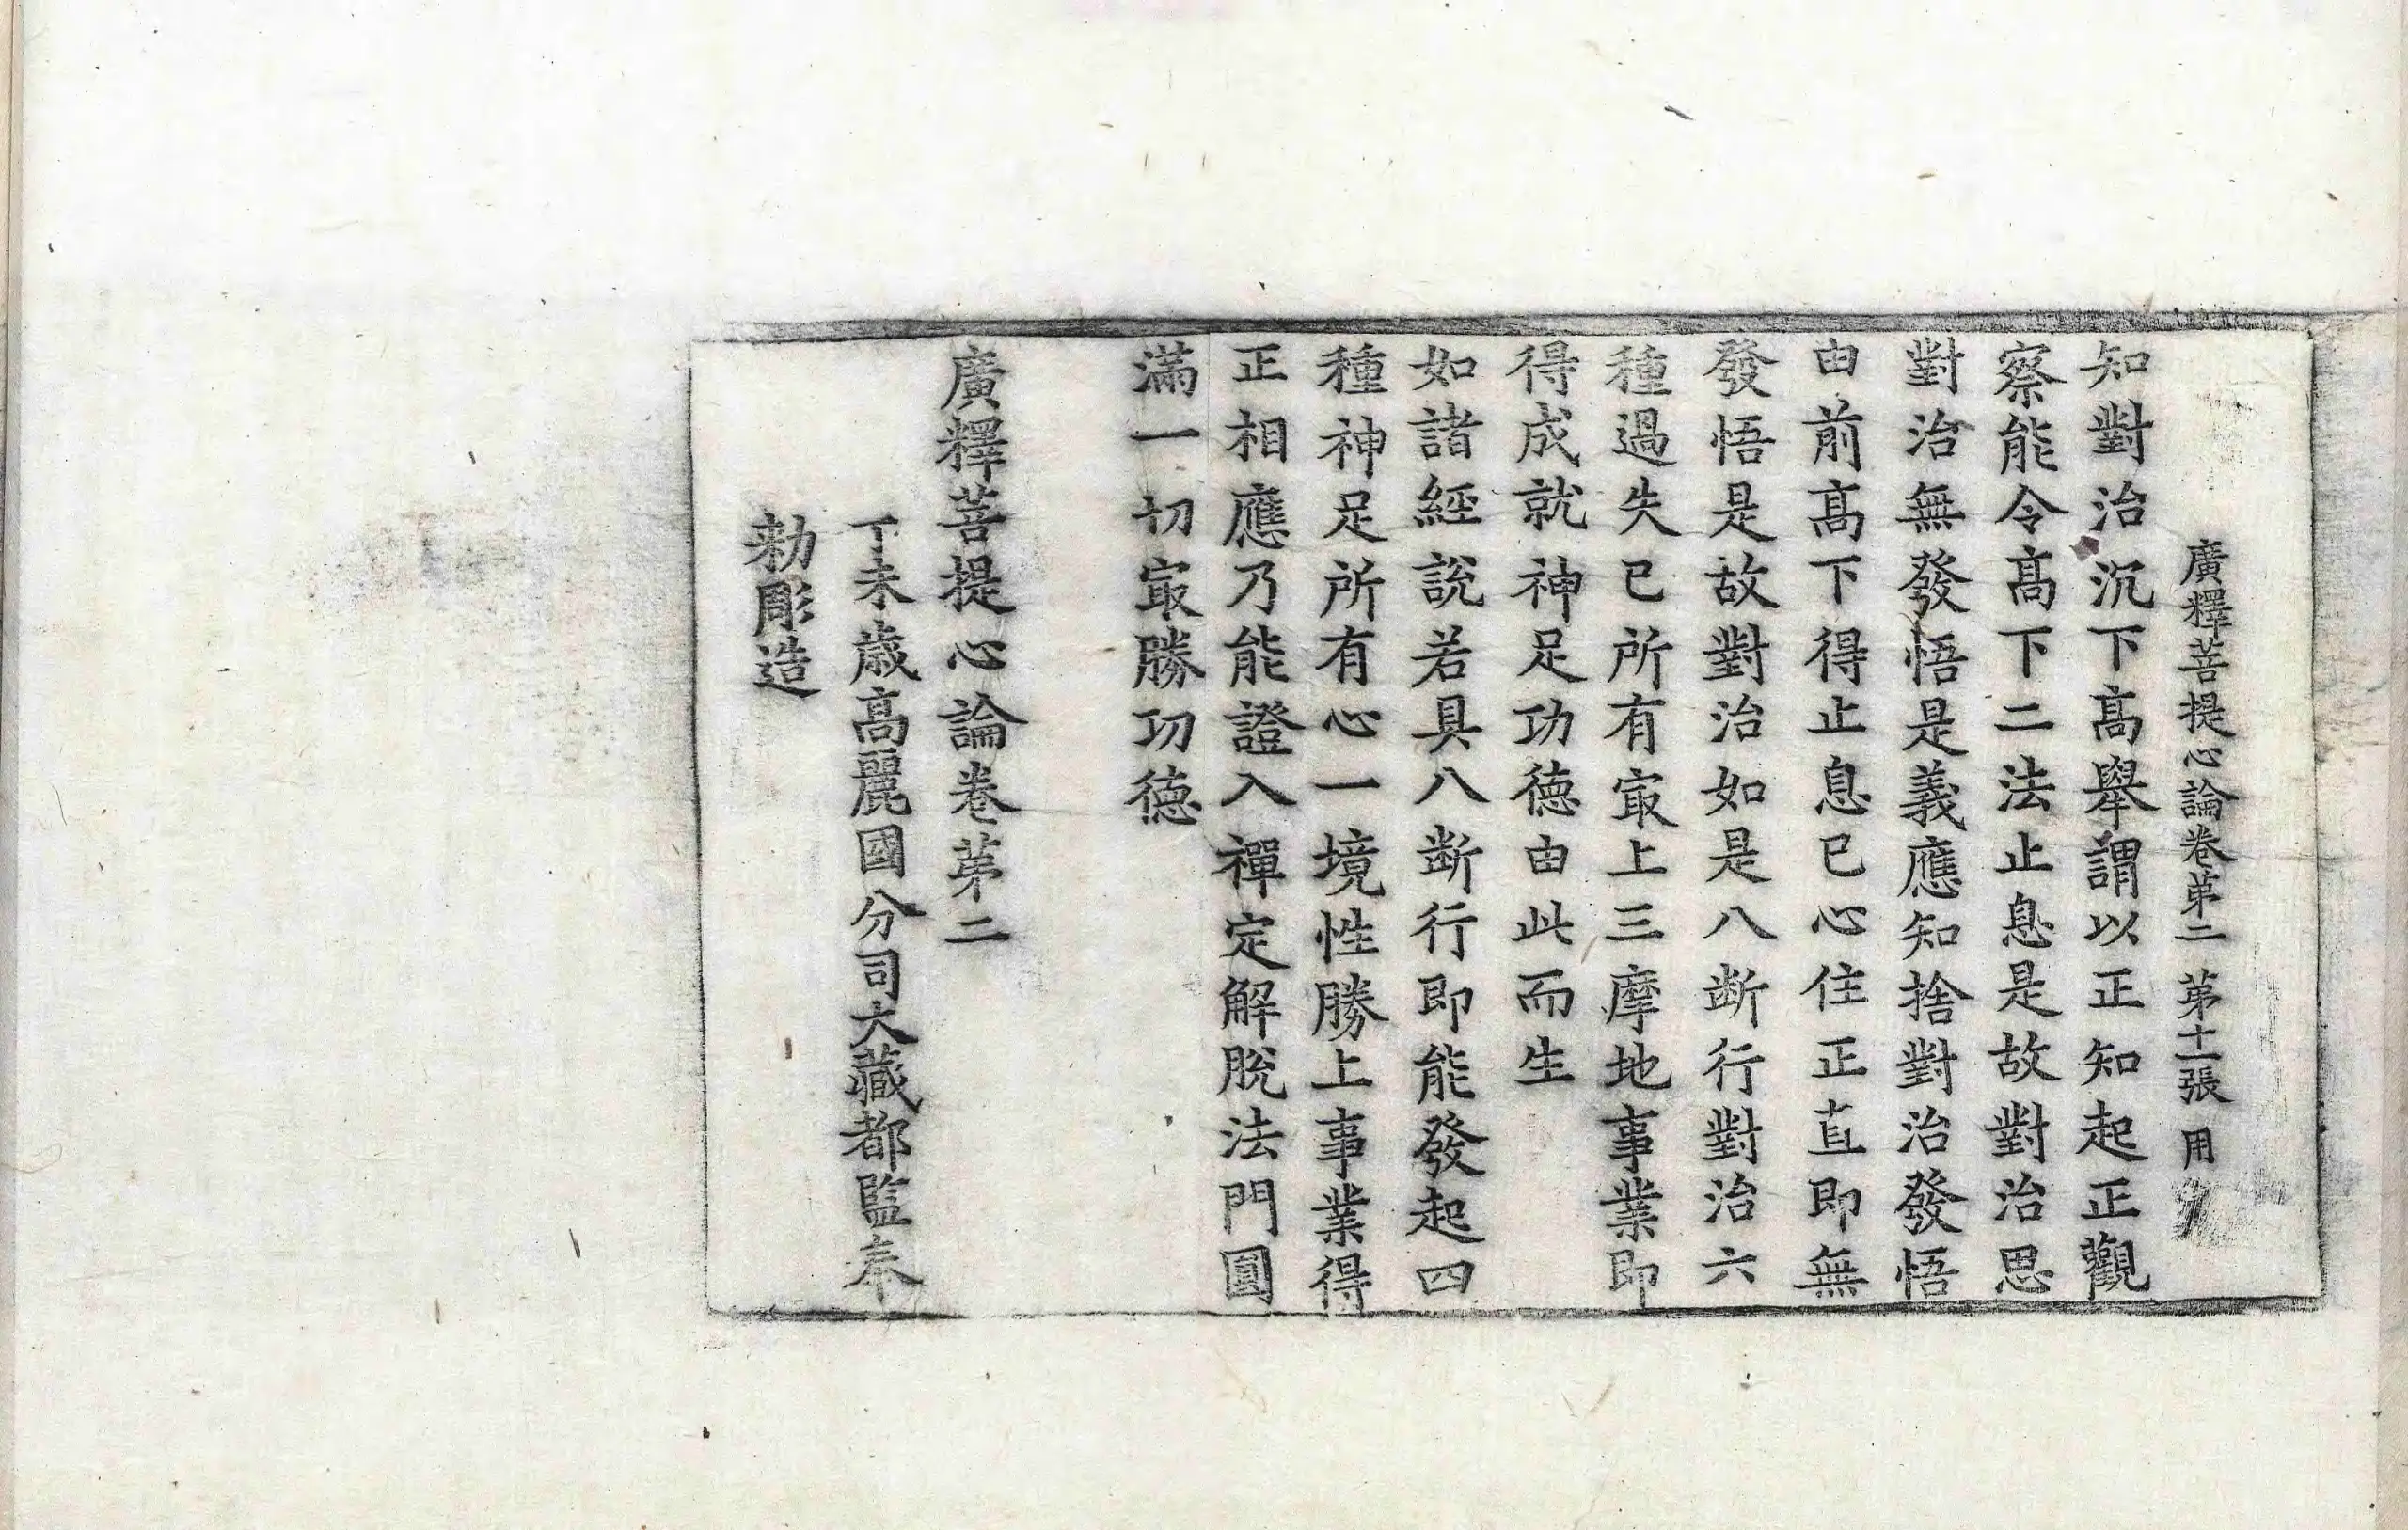 廣釋菩提心論卷苐二 苐十一張 用
知對治沉下髙舉謂以正知起正觀
察能令髙下二法止息是故對治思
對治無發悟是義應知捨對治發悟
由前髙下得止息已心住正直即無
發悟是故對治如是八断行對治六
種過失已所有冣上三摩地事業即
得成就神足功德由此而生
如諸經說若具八断行即能發起四
種神足所有心一境性勝上事業得
正相應乃能證入禪定解脫法門圓
滿一切冣勝功德
廣釋菩提心論卷苐二
丁未歲髙麗國分司大藏都監奉
勅彫造